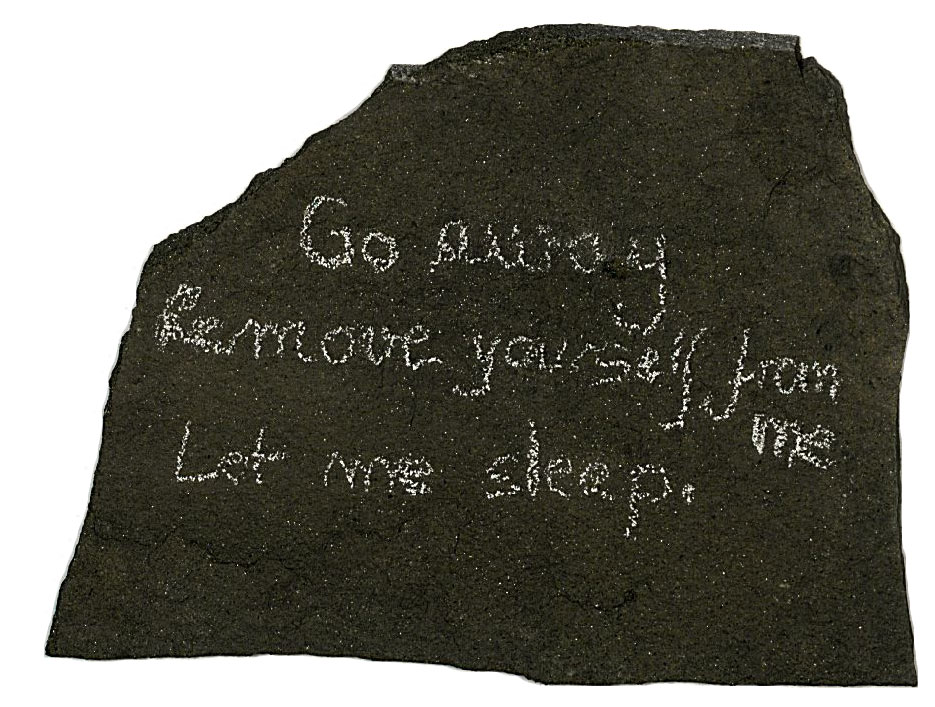 Go away
Remove yourself from
me
Let me sleep.